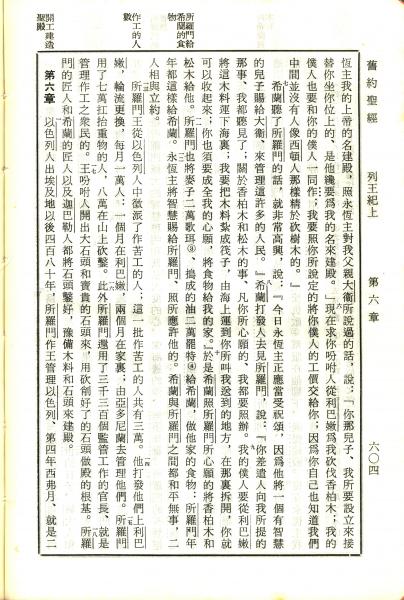 舊約聖經 列王紀上 第六章 六〇四
恆主我的上帝的名建殿、照永恆主對我父親大衛所說過的話，說：『你那兒子、我所要設立來接
替你坐你位上的、是他纔要為我的名來建殿。』現在求你吩咐人從利巴嫩為我砍伐香柏木；我的
僕人也要和你的僕人一同作；我要照你所說定的將你僕人的工價交給你；因為你自己也知道我們
中間並沒有人像西頓人那樣精於砍樹木的。』
希蘭聽了所羅門的話，就非常高興，說：『今日永恆主正應當受祝頌，因為他將一個有智慧
的兒子賜給大衛、來管理這許多的人民。』希蘭打發人去見所羅門，說：『你差遣人向我所提的
那事、我都聽見了；關於香柏木和松木的事、凡你所心願的、我都要照辦。我的僕人要從利巴嫩
將這木料運下海裏；我要把木料紮成筏子，由海上運到你所叫我送到的地方，在那裏拆開，你就
可以收起來；你也須要成全我的心願，將食物給我的家。』於是希蘭照所羅門所心願的將香柏木和
松木給他。所羅門也將麥子二萬歌珥、搗成的油二萬罷特給希蘭，做他家的食物；所羅門年
年都這樣給希蘭。永恆主將智慧賜給所羅門、照所應許他的。希蘭與所羅門之間都和平無事，二
人相與立約。
所羅門王從以色列人中徵派了作苦工的人；這一批作苦工的人共有三萬。他打發他們上利巴
嫩，輪流更換，每月一萬人：一個月在利巴嫩，兩個月在家裏；由亞多尼蘭去管理他們。所羅門
用了七萬扛抬重物的人，八萬在山上砍鑿。此外所羅門還用了三千三百個監管工作的官長、就是
管理作工之衆民的。王吩咐人開出大石頭和寶貴的石頭來，用砍削好了的石頭做殿的根基。所羅
門的匠人和希蘭的匠人以及迦巴勒人都將石頭鑿好，豫備木料和石頭來建殿。
第六章 以色列人出埃及地以後四百八十年，所羅門作王管理以色列、第四年西弗月、就是二
所羅門給
希蘭的食
物
作工的人
數
開工建造
聖殿